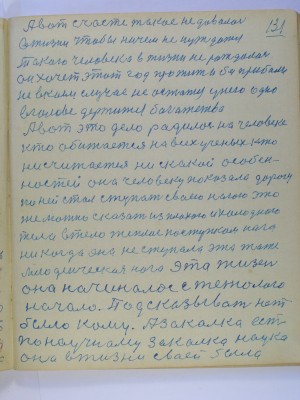 131
А вот счастье такое не давалос
в жизни чтобы ничем не нуждался
Такого человека в жизни не раждалос
он хочет этот год прожить бы прибыль
не в коем случае не остался у него одно
в голове держится багажество
А вот это дело радилос на человеке
кто обижается на всех ученых кто
нисчитается ни скакой особен-
ностей она человеку показала дорогу
по ней стал ступат своею ногою это
же можно сказат из плохого и холодного
тела в тело теплае поступком нага
никогда она не ступала эта таже
нага Эта жизен
она началалос с тежолого
начало. Подсказыват нат
было кому. А закалка ест
по научному закалка наука
она в жизни своей была